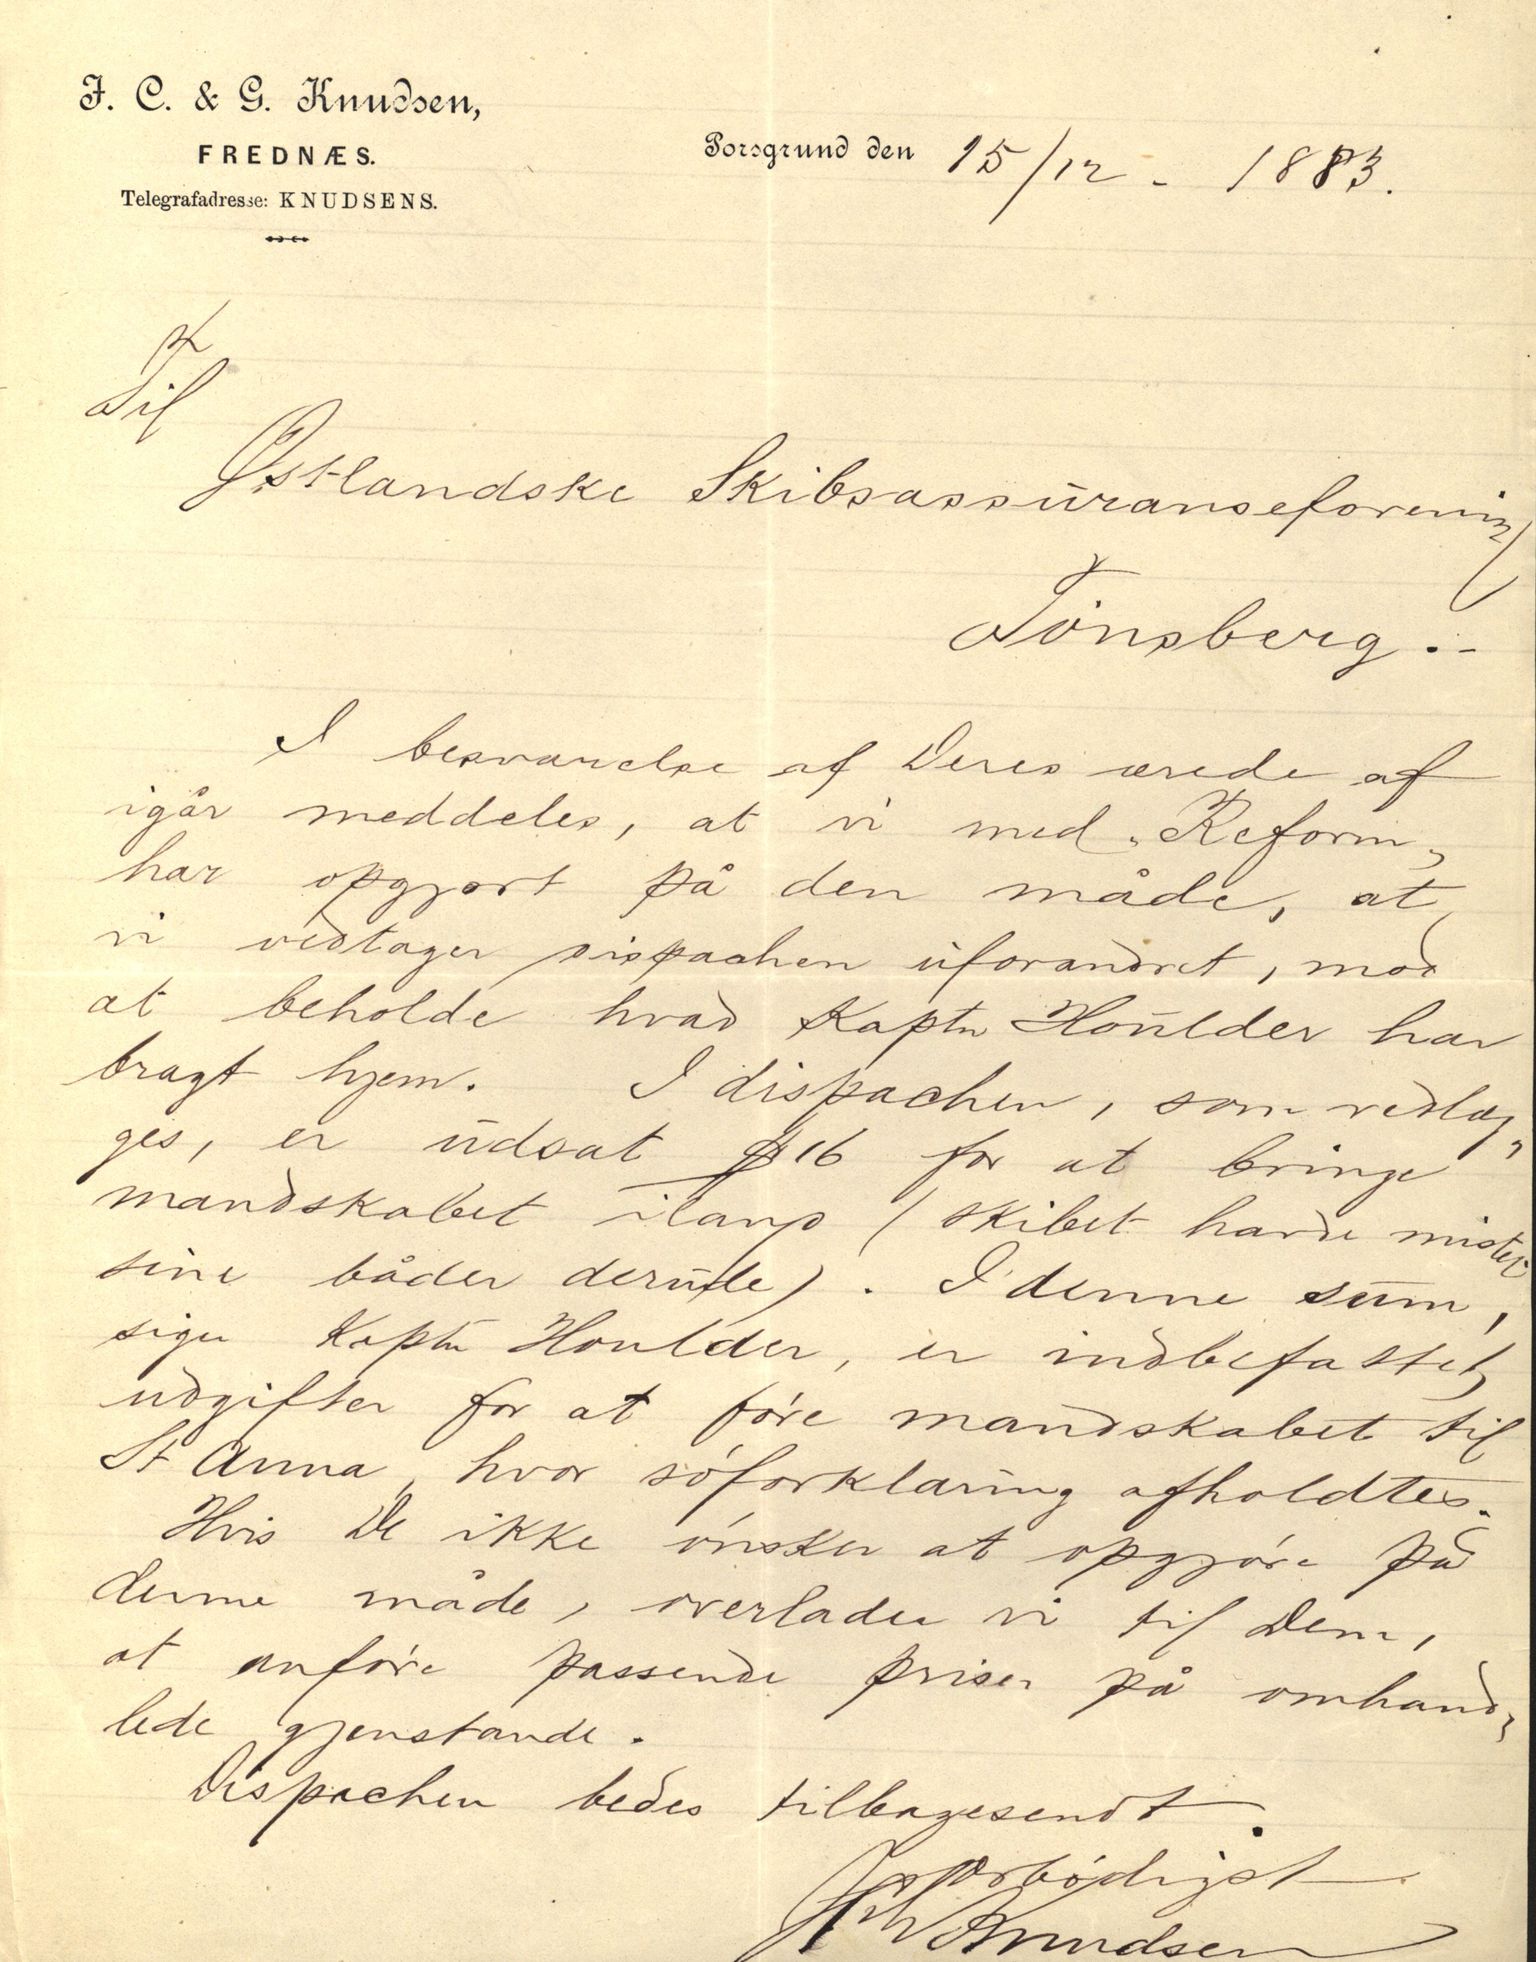 J. C. & G. Knudsen,
FREDNÆS.
Telegrafadresse: KNUDSENS.
Porsgrund den 15/12 - 1883.
Til
Østlandske Skibsassüranseforening
Tönsberg.-
I besvarelse af Deres ærede af
igår meddeles, at vi med "Reform"
har opgjort på den måde, at
vi vedtager dispachen üforandret, mod
at beholde hvad Kaptn Houlder har
bragt hjem. I dispachen, som vedlæg,
ges, er üdsat $16 for at bringe
mandskabet iland (skibet havde mistet
sine både derüde). I denne süm,
siger Kaptn Houlder, er indbefattet
udgifter for at före mandskabet til
St Anna, hvor söforklaring afholdtes.
Hvis De ikke önsker at opgjöre på
denne måde, overlader vi til Dem,
at anföre passende priser på omhand,
lede gjenstande.
Dispachen bedes tilbagesendt.
Ærbödigst
Knudsen